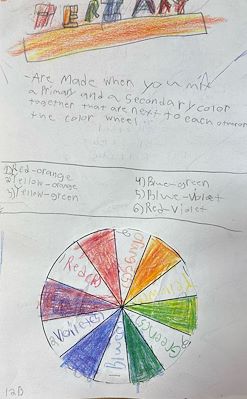 TERTIARY
-Are Made when you mix
a primary and a secondary color
together that are next to each other on
the color wheel
1) Red-orange
2) Yellow-orange
3) Yellow-green
4) Blue-green
5) Blue-Violet
6) Red-Violet
Red
orange
Green
Blue
Violet
12B